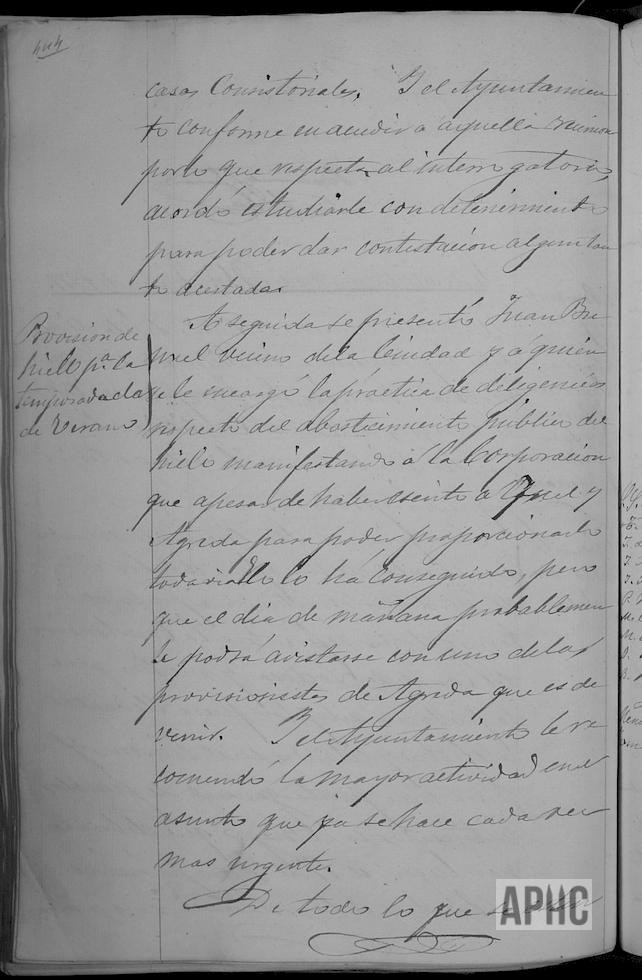 444
casas Consistoriales. Y el Ayuntamien
to conforme en acudir a aquella reunion
por lo que respecta al interrogatorio,
acordó estudiarle con detenimiento
para poder dar contestacion algun tan
to acertada.
Provision de
hielo pª. la
temporada
de Verano
A seguida se presentó Juan Bru
nel vecino de la Ciudad y a quien
se le encargó la práctica de diligencias
respecto del abastecimiento público del
hielo manifestando á la Corporacion
que apesar de haber escrito a y
Agreda para poder proporcionarlo
todavia no lo há conseguido, pero
que el dia de mañana probablemen
te podrá avistarse con uno de los
provisionistas de Agreda que es de
venir. Y el Ayuntamiento le re
comendó la mayor actividad en el
asunto que ya se hace cada vez
mas urgente.
De todo lo que se
APHC